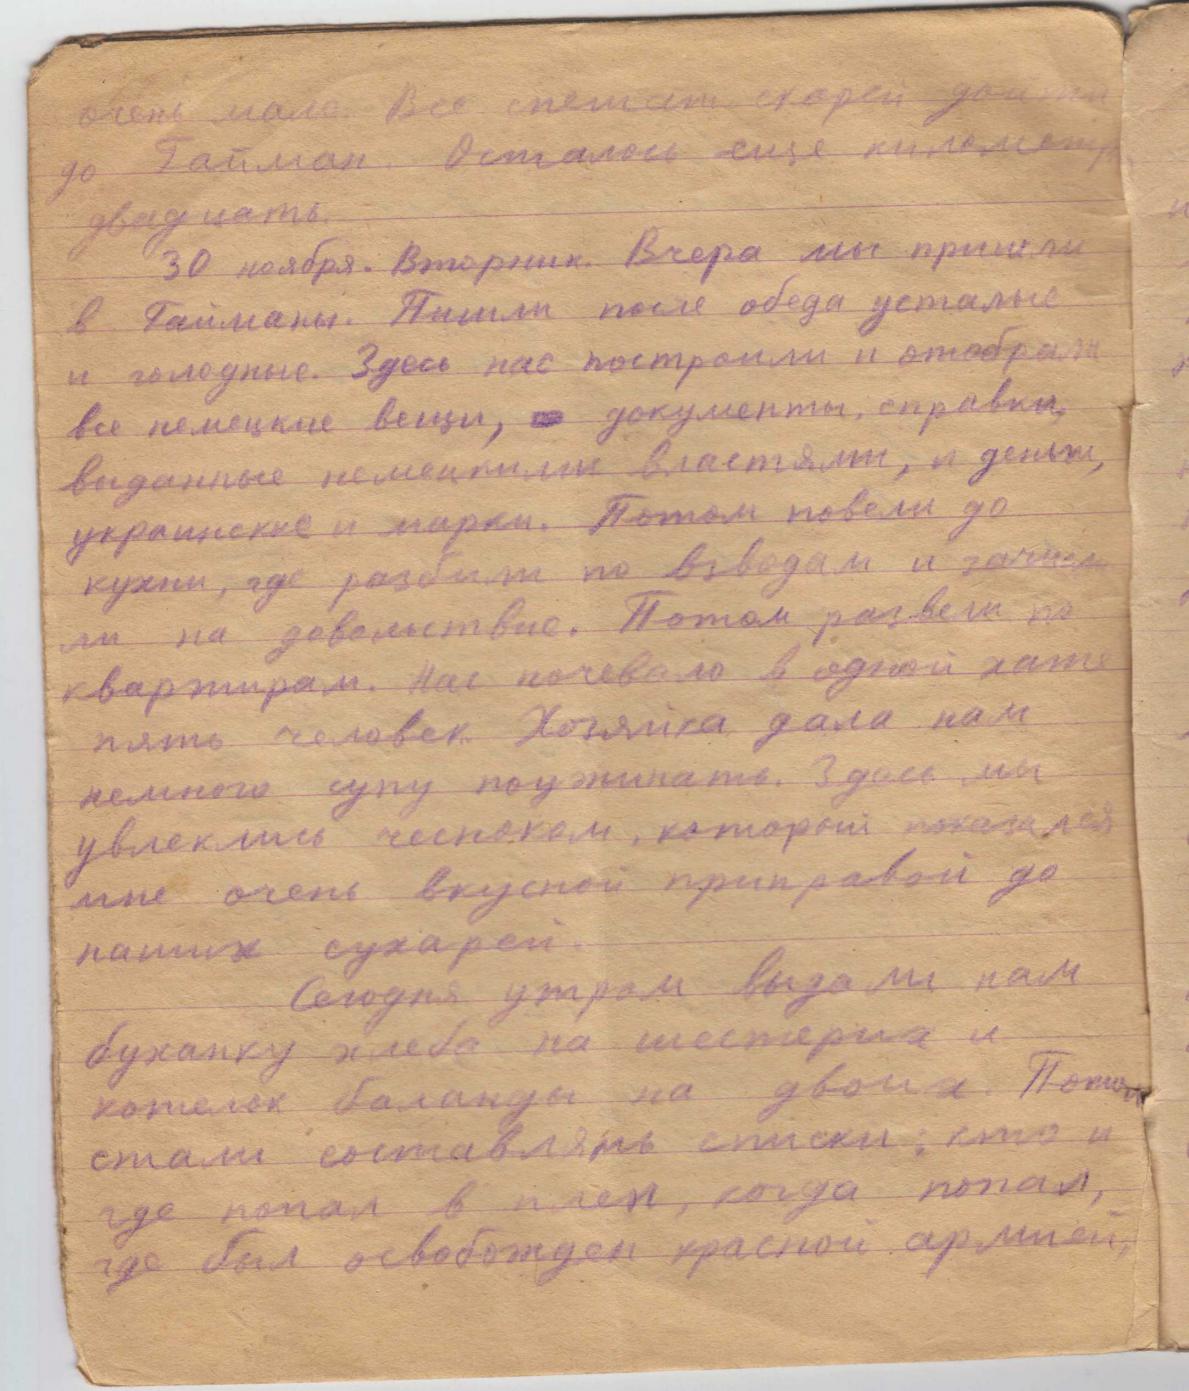 очень мало. Все спешат скорей дойти
до Гайман. Осталось еще километр
двадцать.
30 ноября. Вторник. Вчера мы пришли
в Гайманы. Пишли после обеда усталые
и голодные. Здесь нас построили и отобрали
все немецкие вещи, документы, справки,
выданные немецкими властями, и деньги,
украинские и марки. Потом повели до
кухни, где разбили по взводам и зачисли
ли на довольствие. Потом развели по
квартирам. Нас ночевало в одной хате
пять человек. Хозяйка дала нам
немного супу поужинать. Здесь мы
увлеклись чесноком, который показался
мне очень вкусной приправой до
наших сухарей.
Сегодня утром выдали нам
буханку хлеба на шестерых и
котелок баланды на двоих. Потом
стали составлять списки: кто и
где попал в плен, когда попал,
где был освобожден красной армией,